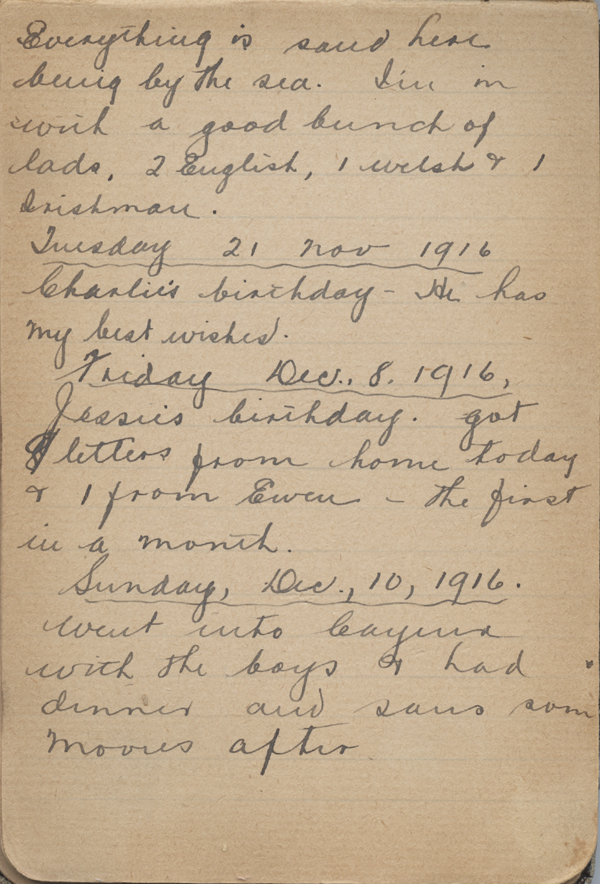 Everything is sand here
being by the sea. I'm in
with a good bunch of
lads, 2 English, 1 welsh & 1
Irishman.
Tuesday 21 Nov 1916
Charlie's birthday - He has
my best wishes.
Friday Dec., 8. 1916,
Jessie's birthday. got
letters from home today
& 1 from Ewen - the first
in a month.
Sunday, Dec., 10, 1916.
Went into
with the boys & had
dinner and saw som
movies after